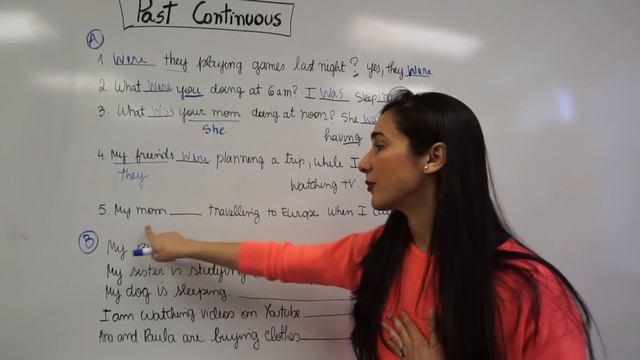 Past Continuous
A
1. Were they playing games last night? yes, they were
2. What were you doing at 6am? I was
3. What was your mom doing at noon? She
she
having
4. My friends were planning a trip, while I
they
watching TV.
5. My mom ____ travelling to Europe when I
B
My
My sister is studying
My dog is sleeping ____
I am watching videos on Youtube ____
Ana and Paula are buying clothes ____